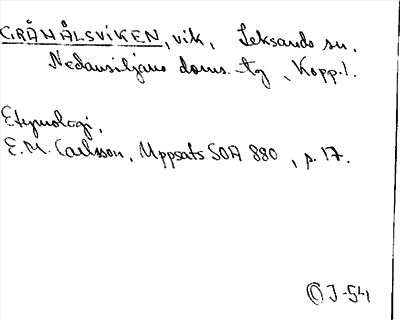 GRÅNÅLSVIKEN, vik, Leksands sn.
Nedansiljans doms.-tg, Kopp.l.
Etymologi,
E.M. Carlsson, Uppsats SOA 880, p. 17.
J-54